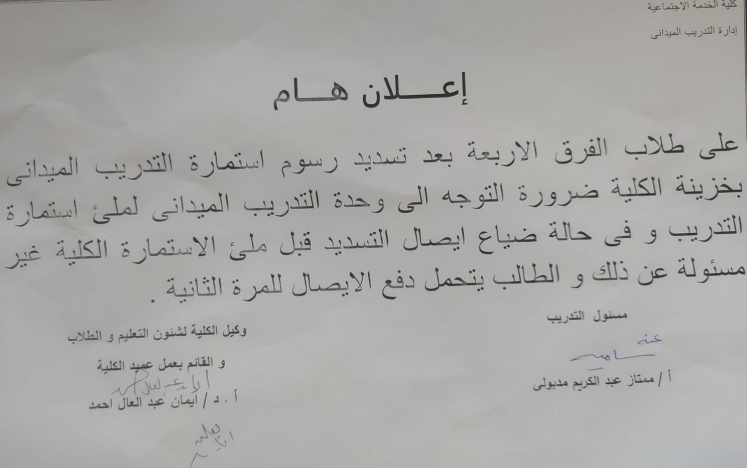 كلية الخدمة الاجتماعية
إدارة التدريب الميدانى
إعـــلان هـــام
على طلاب الفرق الاربعة بعد تسديد رسوم استمارة التدريب الميدانى
بخزينة الكلية ضرورة التوجه الى وحدة التدريب الميدانى لملئ استمارة
التدريب و فى حالة ضياع ايصال التسديد قبل ملئ الاستمارة الكلية غير
مسئولة عن ذلك و الطالب يتحمل دفع الايصال للمرة الثانية .
مسئول التدريب
عنه
أ / ممتاز عبد الكريم مدبولى
وكيل الكلية لشئون التعليم و الطلاب
و القائم بعمل عميد الكلية
أ . د / ايمان عبد العال احمد